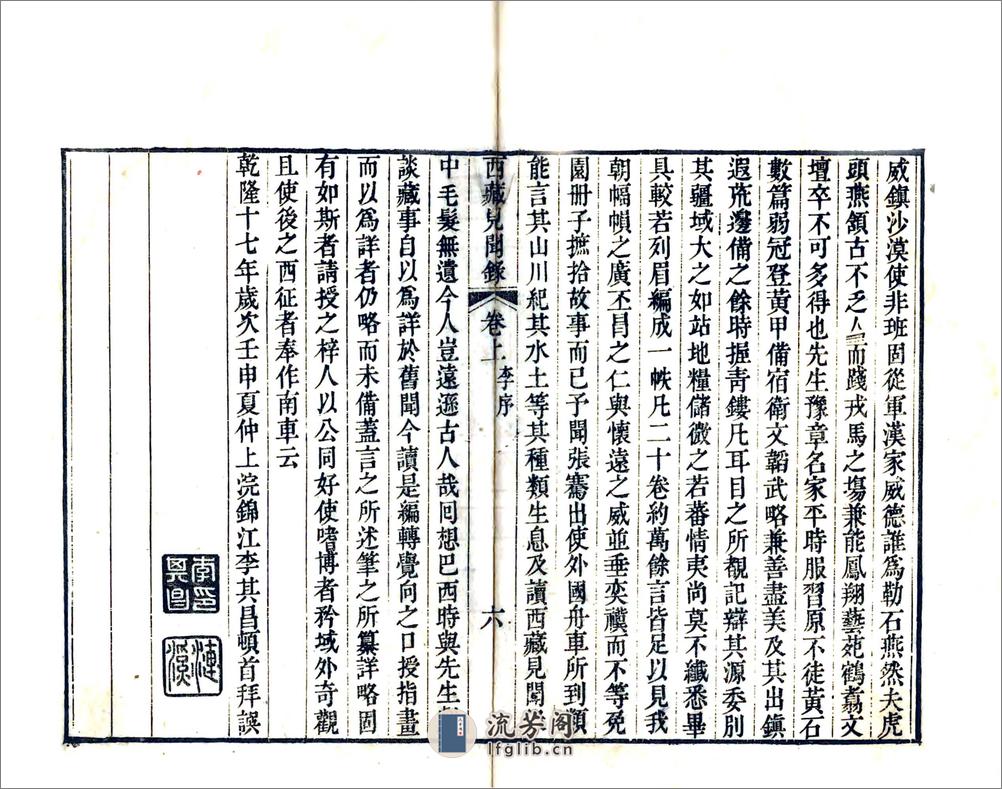 威鎮沙漠使非班固從軍漢家威德誰爲勒石燕然夫虎
頭燕頷古不乏人而踐戎馬之塲兼能鳳翔藝苑鶴翥文
壇卒不可多得也先生豫章名家平時服習原不徒黃石
數篇弱冠登黃甲備宿衛文韜武略兼善盡美及其出鎮
遐荒邊備之餘時握靑鏤凡耳目之所覩記辯其源委別
其疆域大之如站地糧儲微之若蕃情夷尚莫不纖悉畢
具較若列眉編成一帙凡二十卷約萬餘言皆足以見我
朝幅幀之廣丕昌之仁與懷遠之威並垂奕禩而不等兔
園册子摭拾故事而已予聞張騫出使外國舟車所到類
能言其山川紀其水土等其種類生息及讀西藏見聞
西藏見聞錄 卷上 李序 六
中毛髮無遺今人豈遠遜古人哉回想巴西時與先生
談藏事自以爲詳於舊聞今讀是編轉覺向之口授指畫
而以爲詳者仍略而未備蓋言之所述筆之所纂詳略固
有如斯者請授之梓人以公同好使嗜博者矜域外奇觀
且使後之西征者奉作南車云
乾隆十七年歲次壬申夏仲上浣錦江李其昌頓首拜譔
李印其昌
漣溪
流芳阁
lfglib.cn